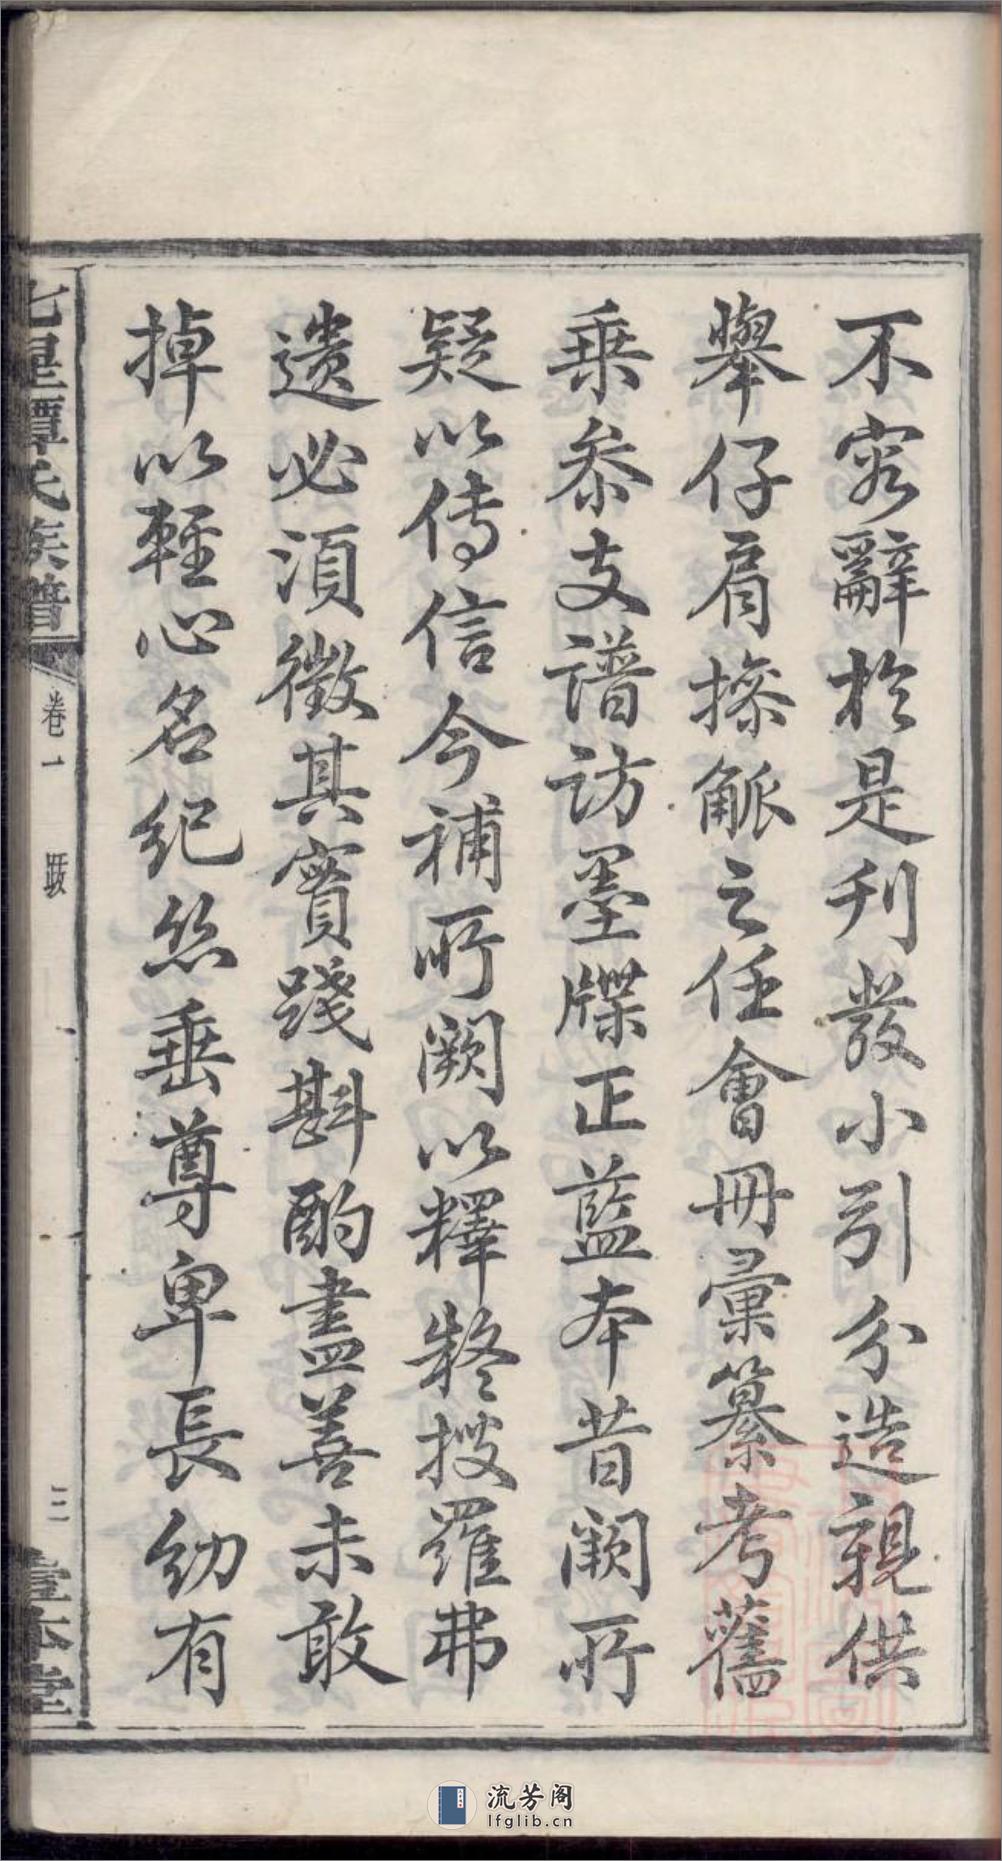 不容辭於是刋發小引分造親供
舉仔肩操觚之任會冊彙纂考舊
乗叅支譜訪墨牒正藍本昔闕所
疑以傳信今補所闕以釋疑搜羅弗
遺必湏徵其實踐斟酌盡善未敢
掉以輕心名紀丝垂尊卑長幼有
七星譚氏族譜
卷一
跋
三
本堂
流芳阁
lfglib.cn